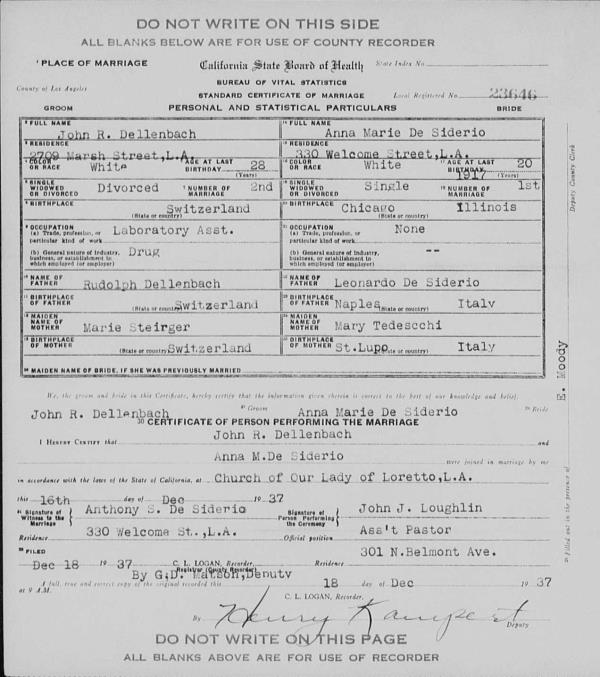 DO NOT WRITE ON THIS SIDE
ALL BLANKS BELOW ARE FOR USE OF COUNTY RECORDER
1 PLACE OF MARRIAGE California State Board of Health State Index No.
BUREAU OF VITAL STATISTICS
County of Los Angeles STANDARD CERTIFICATE OF MARRIAGE Local Registered No. 23646
GROOM PERSONAL AND STATISTICAL PARTICULARS BRIDE
FULL NAME John R. Dellenbach FULL NAME Anna Marie De Siderio
RESIDENCE 2709 Marsh Street,L.A. RESIDENCE 330 Welcome Street,L.A.
COLOR OR RACE White AGE AT LAST BIRTHDAY 28 (Years) COLOR OR RACE White AGE AT LAST BIRTHDAY 20 1917 (Years)
SINGLE WIDOWED OR DIVORCED Divorced NUMBER OF MARRIAGE 2nd SINGLE WIDOWED OR DIVORCED Single NUMBER OF MARRIAGE 1st
BIRTHPLACE Switzerland (State or country) BIRTHPLACE Chicago Illinois (State or country)
OCCUPATION Laboratory Asst. OCCUPATION None
(a) Trade, profession, or particular kind of work (a) Trade, profession, or particular kind of work
(b) General nature of industry, business, or establishment in which employed (or employer) Drug (b) General nature of industry, business, or establishment in which employed (or employer) --
NAME OF FATHER Rudolph Dellenbach NAME OF FATHER Leonardo De Siderio
BIRTHPLACE OF FATHER (State or country) Switzerland BIRTHPLACE OF FATHER Naples (State or country) Italy
MAIDEN NAME OF MOTHER Marie Steirger MAIDEN NAME OF MOTHER Mary Tedescchi
BIRTHPLACE OF MOTHER (State or country) Switzerland BIRTHPLACE OF MOTHER St.Lupo (State or country) Italy
MAIDEN NAME OF BRIDE, IF SHE WAS PREVIOUSLY MARRIED
We, the groom and bride in this Certificate, hereby certify that the information given therein is correct to the best of our knowledge and belief.
John R. Dellenbach Groom Anna Marie De Siderio Bride
30 CERTIFICATE OF PERSON PERFORMING THE MARRIAGE
I HEREBY CERTIFY that John R. Dellenbach and
Anna M.De Siderio were joined in marriage by me
in accordance with the laws of the State of California, at Church of Our Lady of Loretto,L.A.
this 16th day of Dec 1937
Signature of Witness to the Marriage Anthony S. De Siderio Signature of Person Performing the Ceremony John J. Loughlin
Residence 330 Welcome St.,L.A. Official position Ass't Pastor
FILED Dec 18 1937 C. L. LOGAN, Recorder, Residence 301 N.Belmont Ave.
Registrar (County Recorder)
By G.D. Matson,Deputy
A full, true and correct copy of the original recorded this 18 day of Dec 1937
at 9 A.M. C. L. LOGAN, Recorder,
By Henry Kampert Deputy
DO NOT WRITE ON THIS PAGE
ALL BLANKS ABOVE ARE FOR USE OF RECORDER
Filled out in the presence of E. Moody Deputy County Clerk